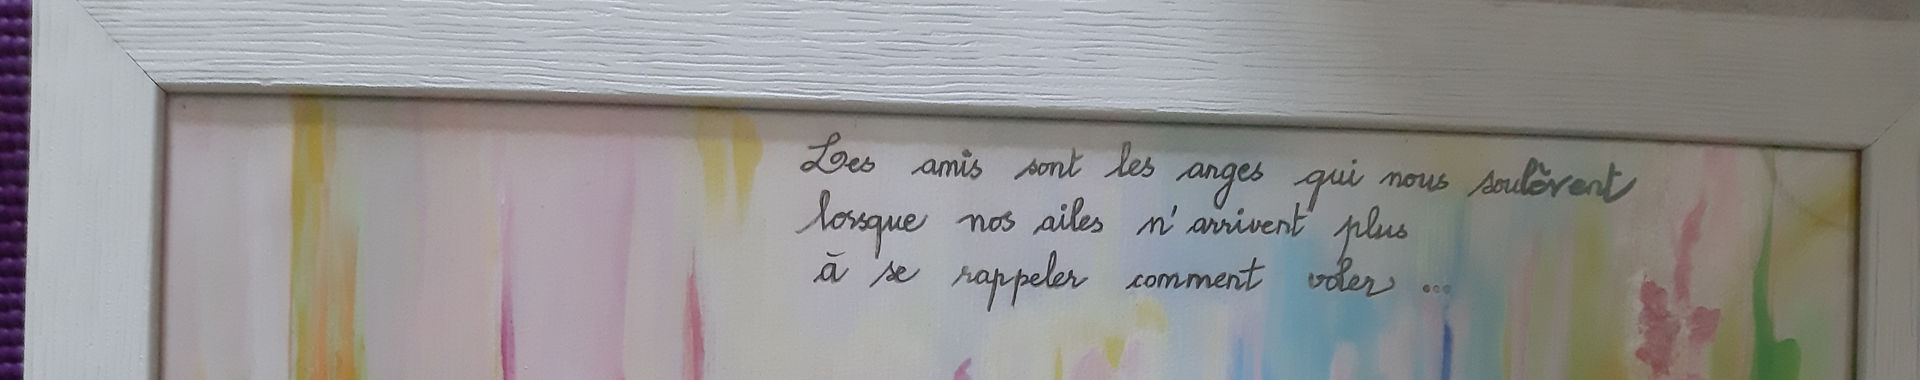 Les amis sont les anges qui nous soulèvent
lorsque nos ailes n'arrivent plus
à se rappeler comment voler ...